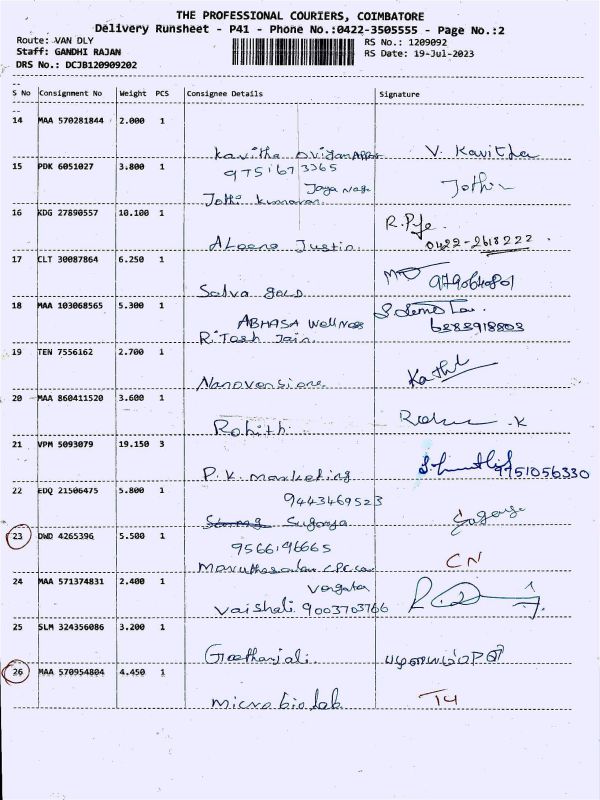 THE PROFESSIONAL COURIERS, COIMBATORE
Delivery Runsheet - P41 - Phone No.:0422-3505555 - Page No.:2
Route: VAN DLY RS No.: 1209092
Staff: GANDHI RAJAN RS Date: 19-Jul-2023
DRS No.: DCJB120909202
S No Consignment No Weight PCS Consignee Details Signature
14 MAA 570281844 2.000 1
Kavitha V. Kavitha
15 PDK 6051027 3.800 1 9751673365
Jaya Nagr Jothi
Jothi kumaran
16 KDG 27890557 10.100 1 R.
ALeena Justin 0422-2618222
17 CLT 30087864 6.250 1
Salva gold 9790640801
18 MAA 103068565 5.300 1
ABHASA Wellness 6888918803
RiTash Jain
19 TEN 7556162 2.700 1
20 MAA 860411520 3.600 1
Rohith K
21 VPM 5093079 19.150 3
P.K. marketing 9751056330
22 EDQ 21506475 5.800 1 9443469523
Suganya
23 DWD 4265396 5.500 1 9566196665
CN
24 MAA 571374831 2.400 1
Vaishali 9003703766
25 SLM 324356086 3.200 1
Geethanjali
26 MAA 570954804 4.450 1
micro bio lab